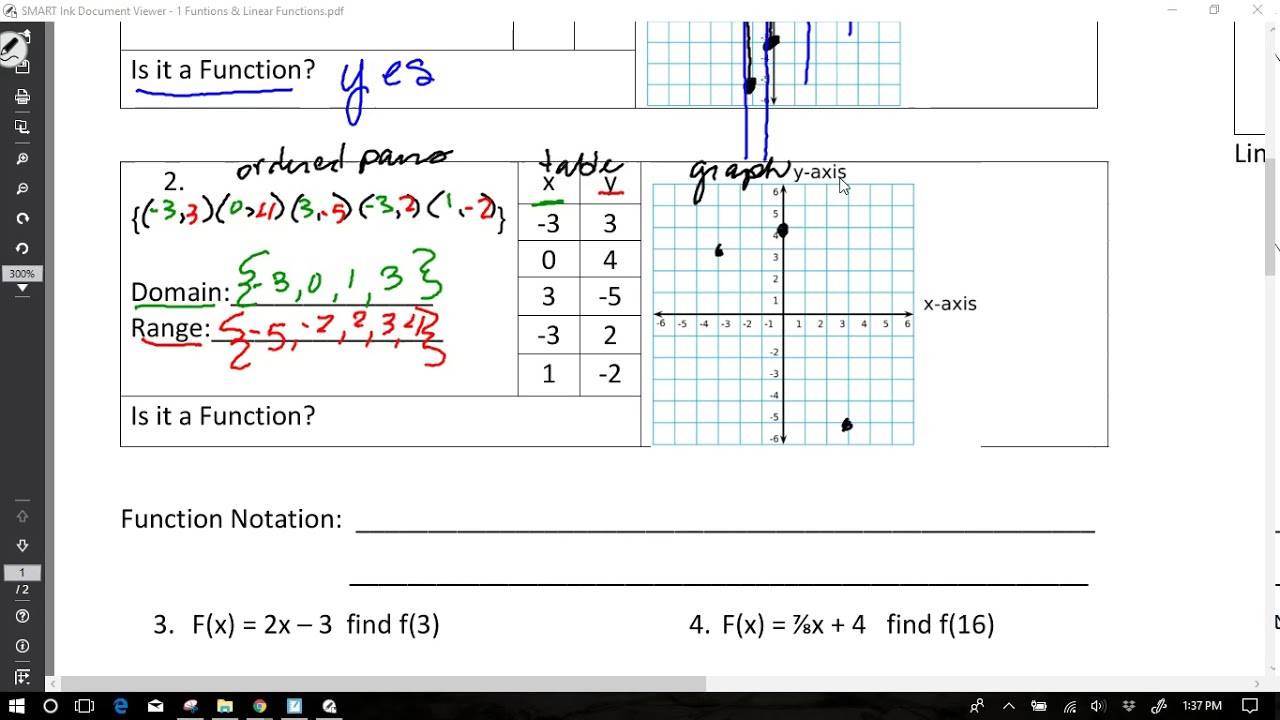 SMART Ink Document Viewer - 1 Funtions & Linear Functions.pdf
Is it a Function? yes
ordered pairs
table
graph
y-axis
2.
{(-3,3)(0,4)(3,-5)(-3,2)(1,-2)}
x y
-3 3
0 4
3 -5
-3 2
1 -2
Domain: {-3, 0, 1, 3}
Range: {-5, -2, 2, 3, 4}
Is it a Function?
6
5
4
3
2
1
-6 -5 -4 -3 -2 -1 1 2 3 4 5 6
-2
-3
-4
-5
-6
x-axis
Lin
Function Notation:
3. F(x) = 2x – 3 find f(3)
4. F(x) = ⅞x + 4 find f(16)
300%
1
/ 2
1:37 PM